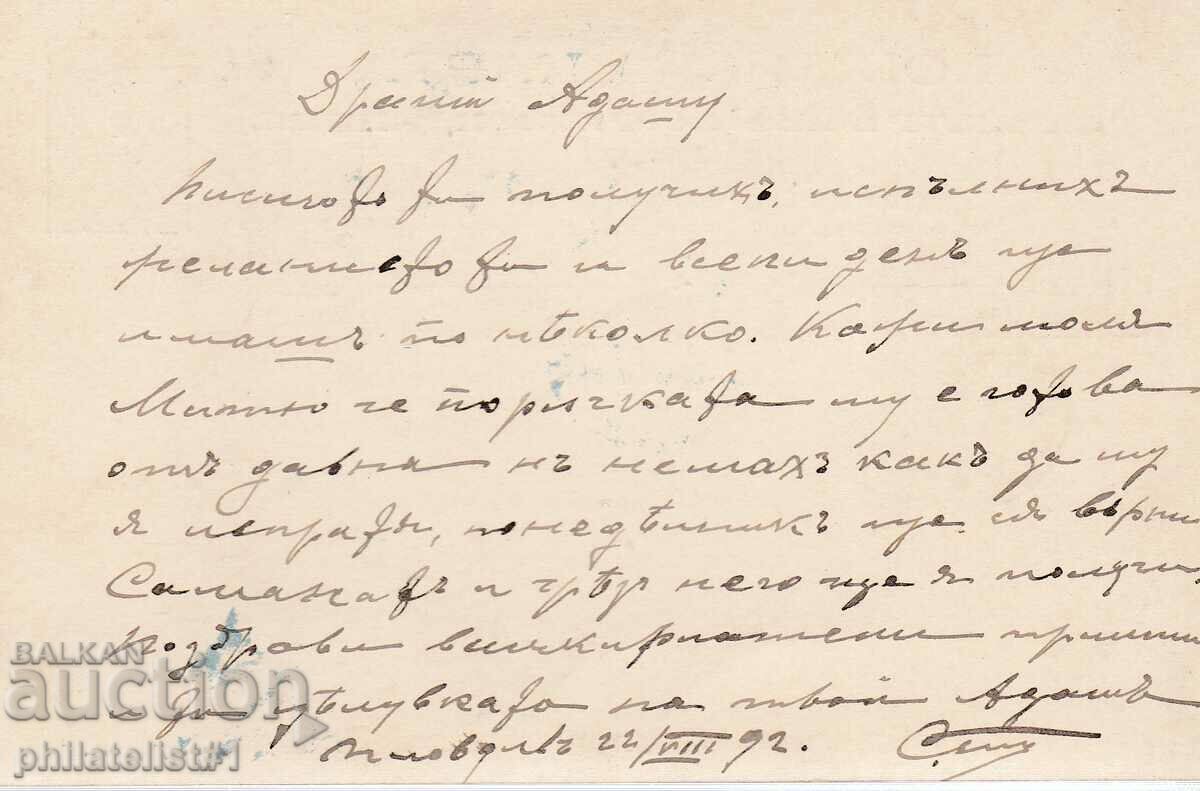 Драгий Адашу
Писмото ти получихъ, испълнихъ
желанието ти и всеки денъ ще
имашъ по нѣколко. Кажи моля
Митю че поръчката му е готова
отъ давна нъ немахъ какъ да му
я испратѭ, понедѣлникъ ще се върни
и чрѣз него ще я получи.
Поздрави всички
и цѣлувката на твой Адашъ
Пловдивъ 22/VIII 92.
BALKAN
auction
philatelist#1